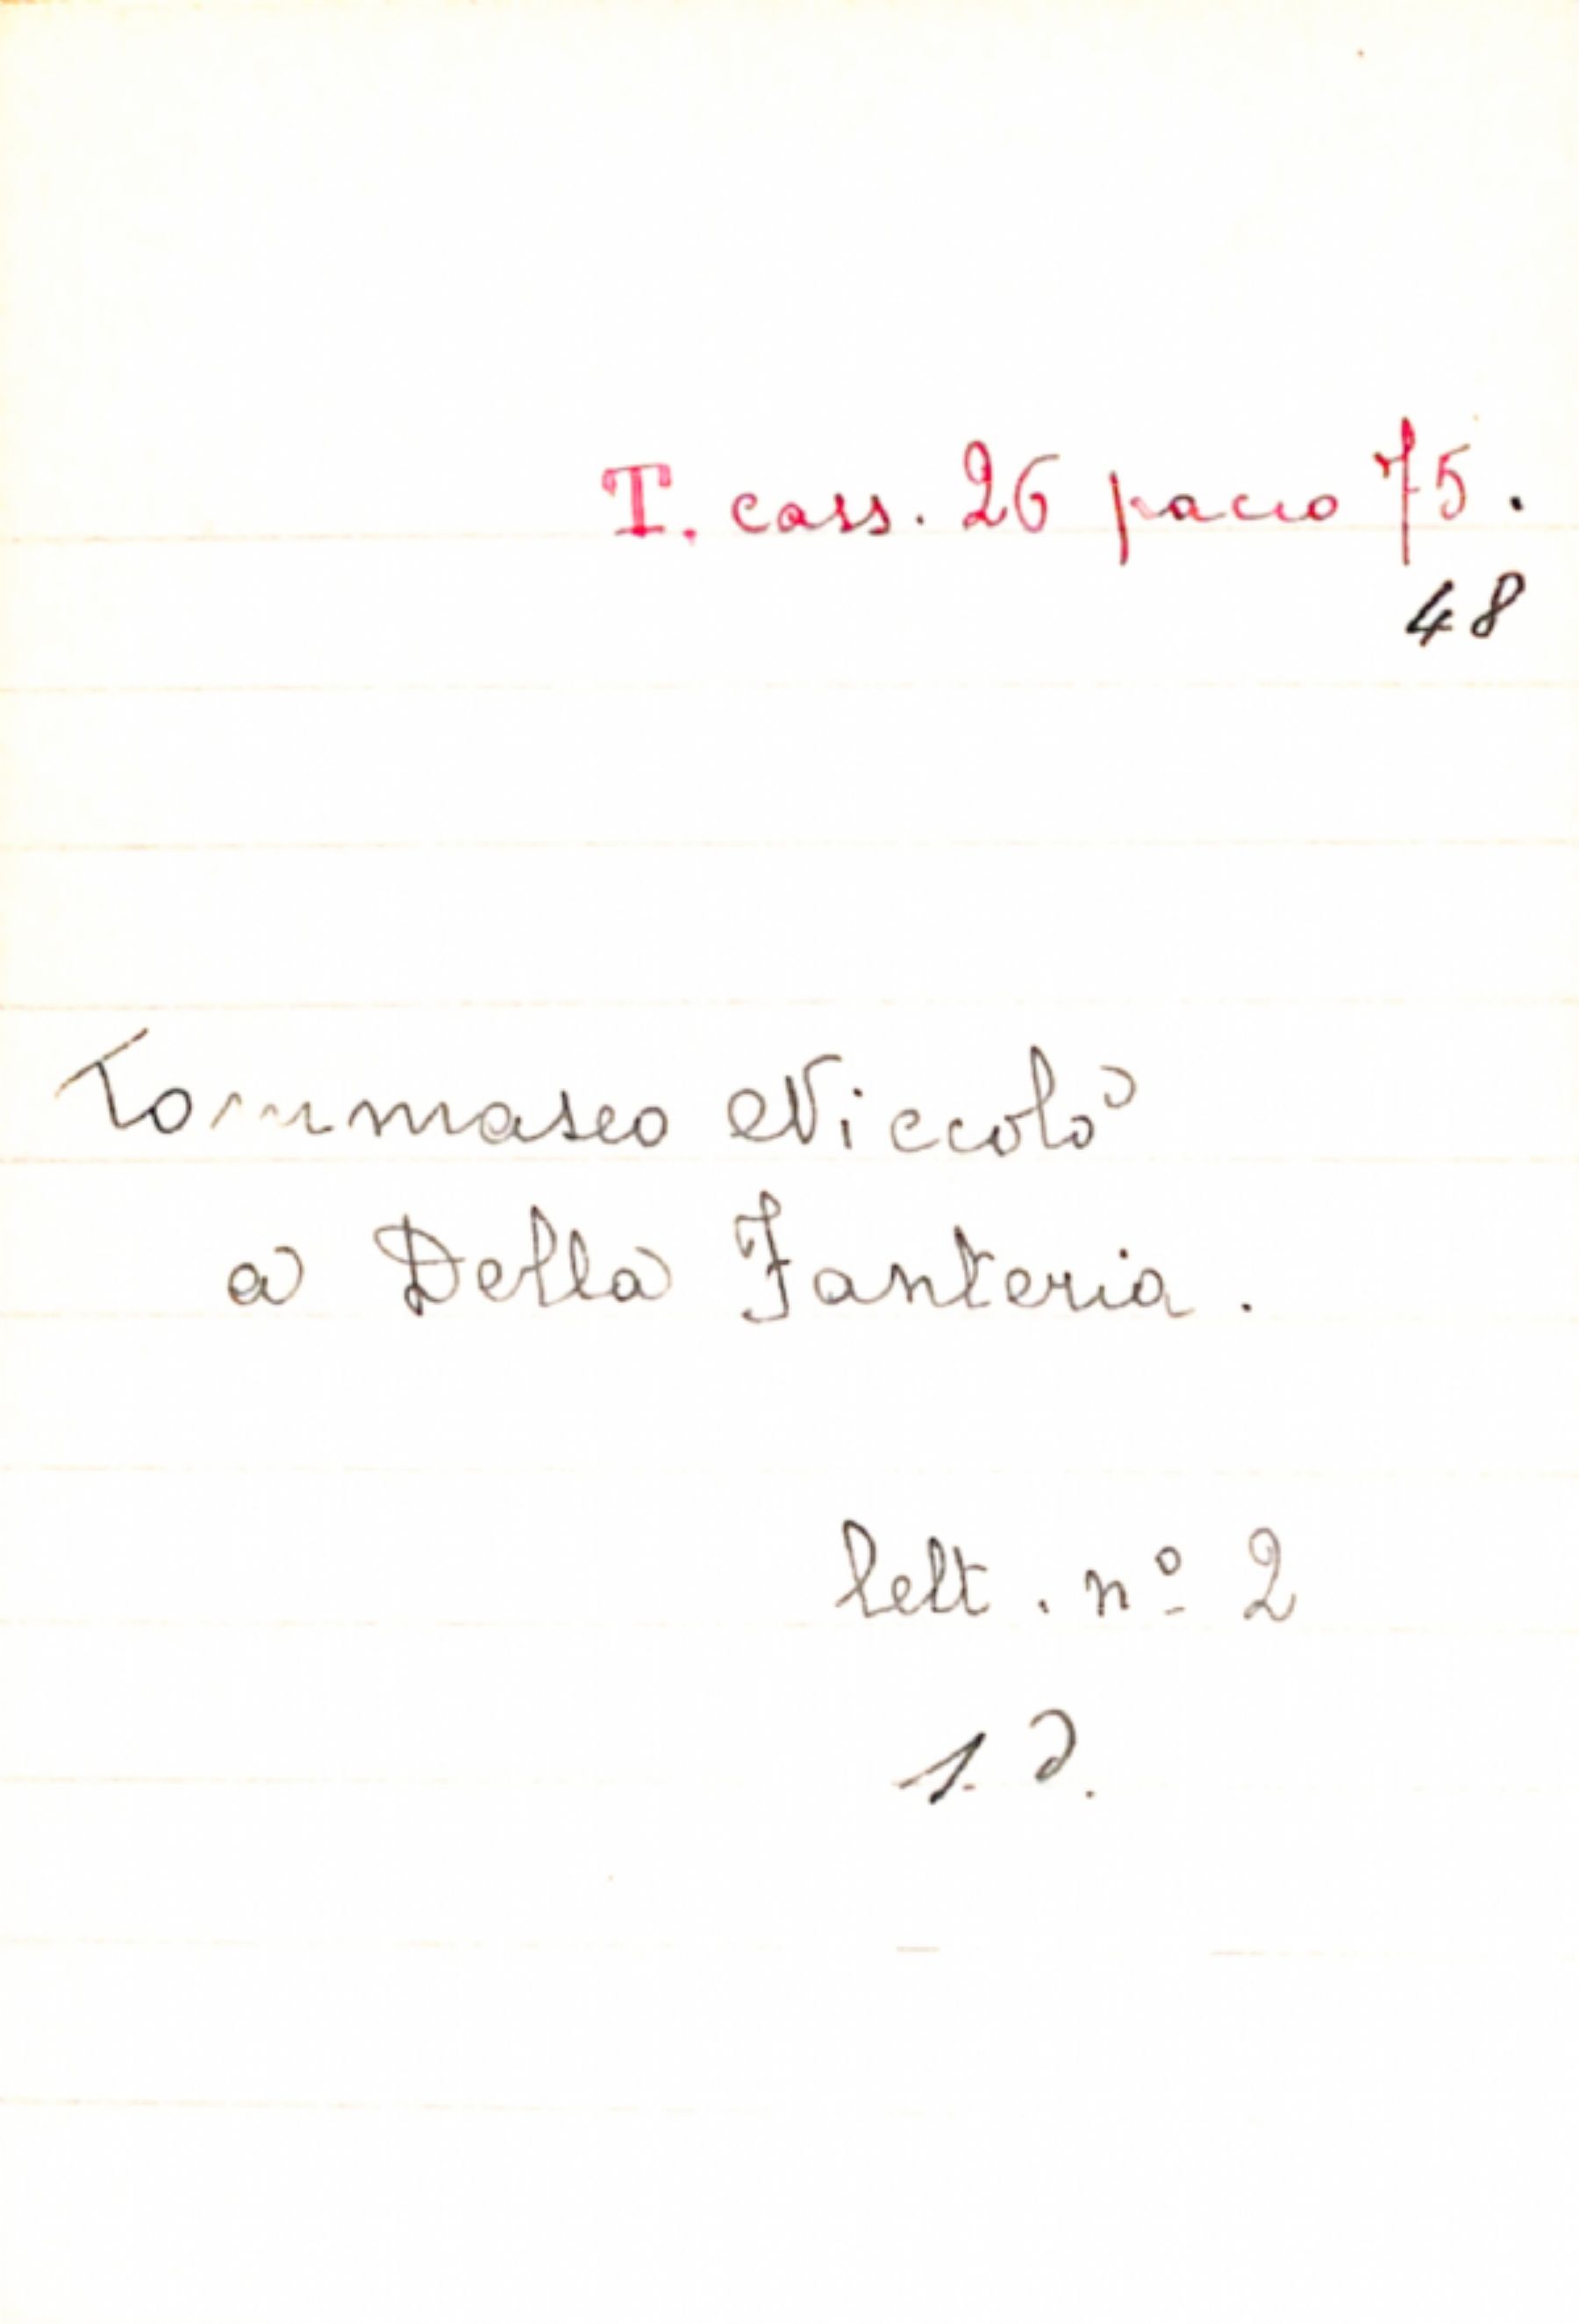 T. cass. 26 pacco 75.
48
Tommaseo Niccolò
a Della Fanteria.
lett. nº 2
s. d.